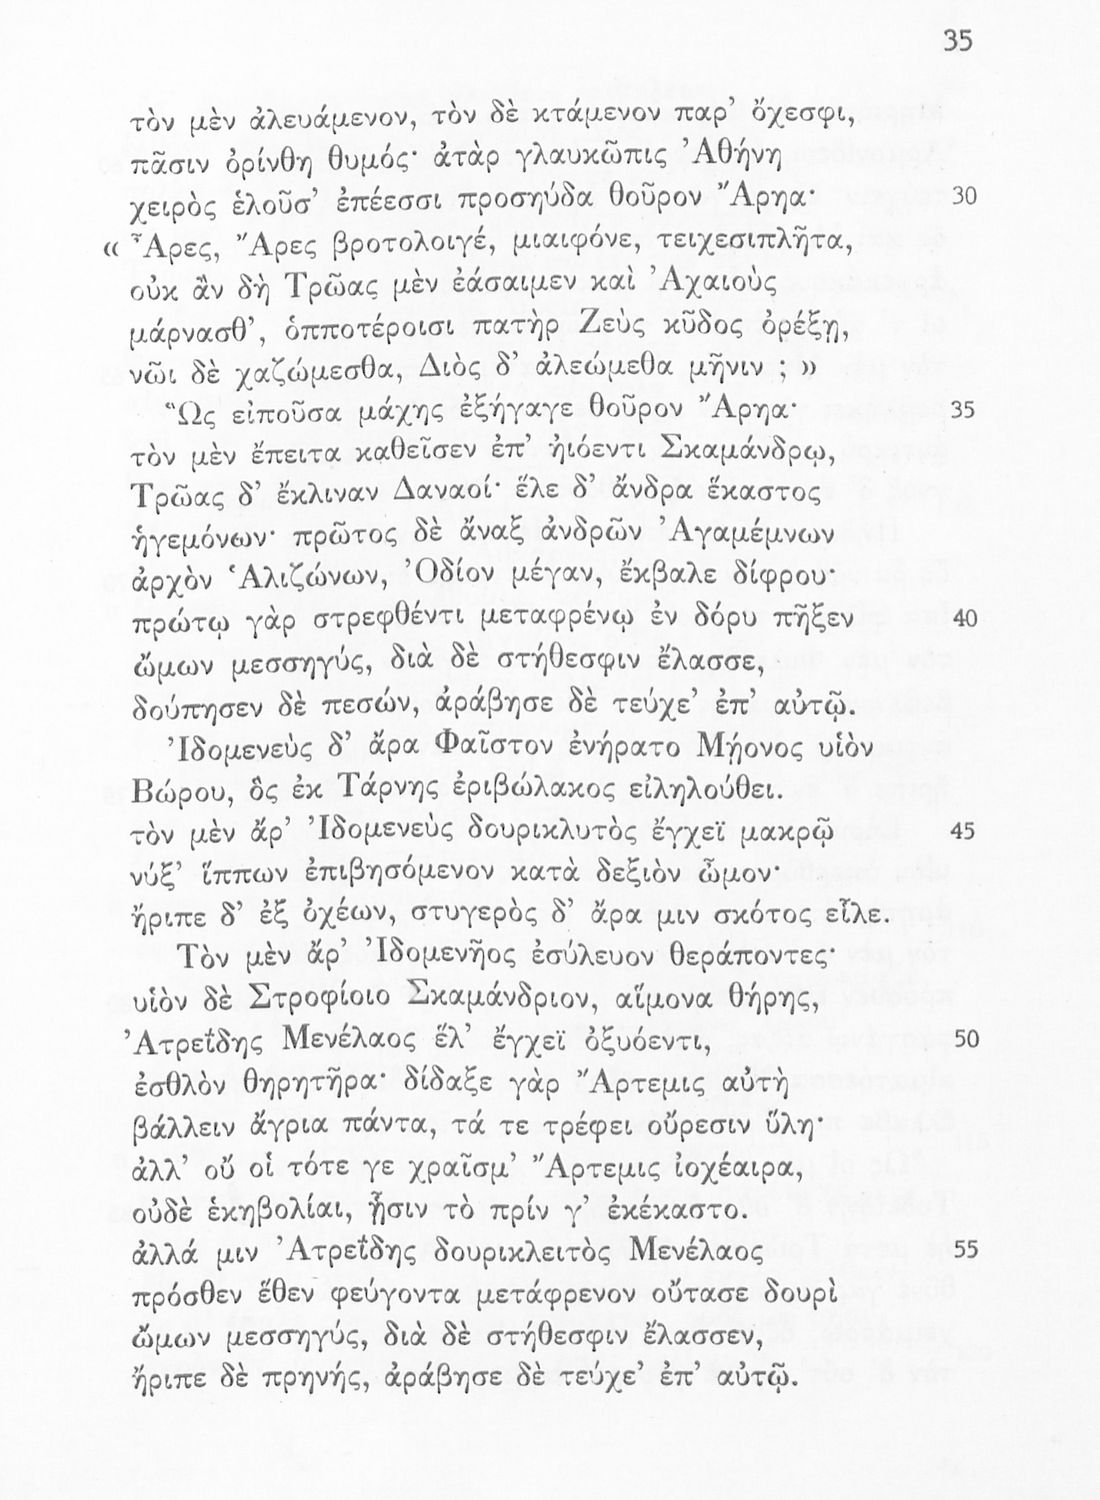 35
τὸν μὲν ἀλευάμενον, τὸν δὲ κτάμενον παρ’ ὄχεσφι,
πᾶσιν ὀρίνθη θυμός· ἀτὰρ γλαυκῶπις Ἀθήνη
χειρὸς ἑλοῦσ’ ἐπέεσσι προσηύδα θοῦρον Ἄρηα· 30
« Ἆρες, Ἄρες βροτολοιγέ, μιαιφόνε, τειχεσιπλῆτα,
οὐκ ἂν δὴ Τρῶας μὲν ἐάσαιμεν καὶ Ἀχαιοὺς
μάρνασθ’, ὁπποτέροισι πατὴρ Ζεὺς κῦδος ὀρέξῃ,
νῶι δὲ χαζώμεσθα, Διὸς δ’ ἀλεώμεθα μῆνιν ; »
Ὣς εἰποῦσα μάχης ἐξήγαγε θοῦρον Ἄρηα· 35
τὸν μὲν ἔπειτα καθεῖσεν ἐπ’ ἠιόεντι Σκαμάνδρῳ,
Τρῶας δ’ ἔκλιναν Δαναοί· ἕλε δ’ ἄνδρα ἕκαστος
ἡγεμόνων· πρῶτος δὲ ἄναξ ἀνδρῶν Ἀγαμέμνων
ἀρχὸν Ἁλιζώνων, Ὀδίον μέγαν, ἔκβαλε δίφρου·
πρώτῳ γὰρ στρεφθέντι μεταφρένῳ ἐν δόρυ πῆξεν 40
ὤμων μεσσηγύς, διὰ δὲ στήθεσφιν ἔλασσε,
δούπησεν δὲ πεσών, ἀράβησε δὲ τεύχε’ ἐπ’ αὐτῷ.
Ἰδομενεὺς δ’ ἄρα Φαῖστον ἐνήρατο Μῄονος υἱὸν
Βώρου, ὃς ἐκ Τάρνης ἐριβώλακος εἰληλούθει.
τὸν μὲν ἄρ’ Ἰδομενεὺς δουρικλυτὸς ἔγχεϊ μακρῷ 45
νύξ’ ἵππων ἐπιβησόμενον κατὰ δεξιὸν ὦμον·
ἤριπε δ’ ἐξ ὀχέων, στυγερὸς δ’ ἄρα μιν σκότος εἷλε.
Τὸν μὲν ἄρ’ Ἰδομενῆος ἐσύλευον θεράποντες·
υἱὸν δὲ Στροφίοιο Σκαμάνδριον, αἵμονα θήρης,
Ἀτρεΐδης Μενέλαος ἕλ’ ἔγχεϊ ὀξυόεντι, 50
ἐσθλὸν θηρητῆρα· δίδαξε γὰρ Ἄρτεμις αὐτὴ
βάλλειν ἄγρια πάντα, τά τε τρέφει οὔρεσιν ὕλη·
ἀλλ’ οὔ οἱ τότε γε χραῖσμ’ Ἄρτεμις ἰοχέαιρα,
οὐδὲ ἑκηβολίαι, ᾗσιν τὸ πρίν γ’ ἐκέκαστο.
ἀλλά μιν Ἀτρεΐδης δουρικλειτὸς Μενέλαος 55
πρόσθεν ἕθεν φεύγοντα μετάφρενον οὔτασε δουρὶ
ὤμων μεσσηγύς, διὰ δὲ στήθεσφιν ἔλασσεν,
ἤριπε δὲ πρηνής, ἀράβησε δὲ τεύχε’ ἐπ’ αὐτῷ.